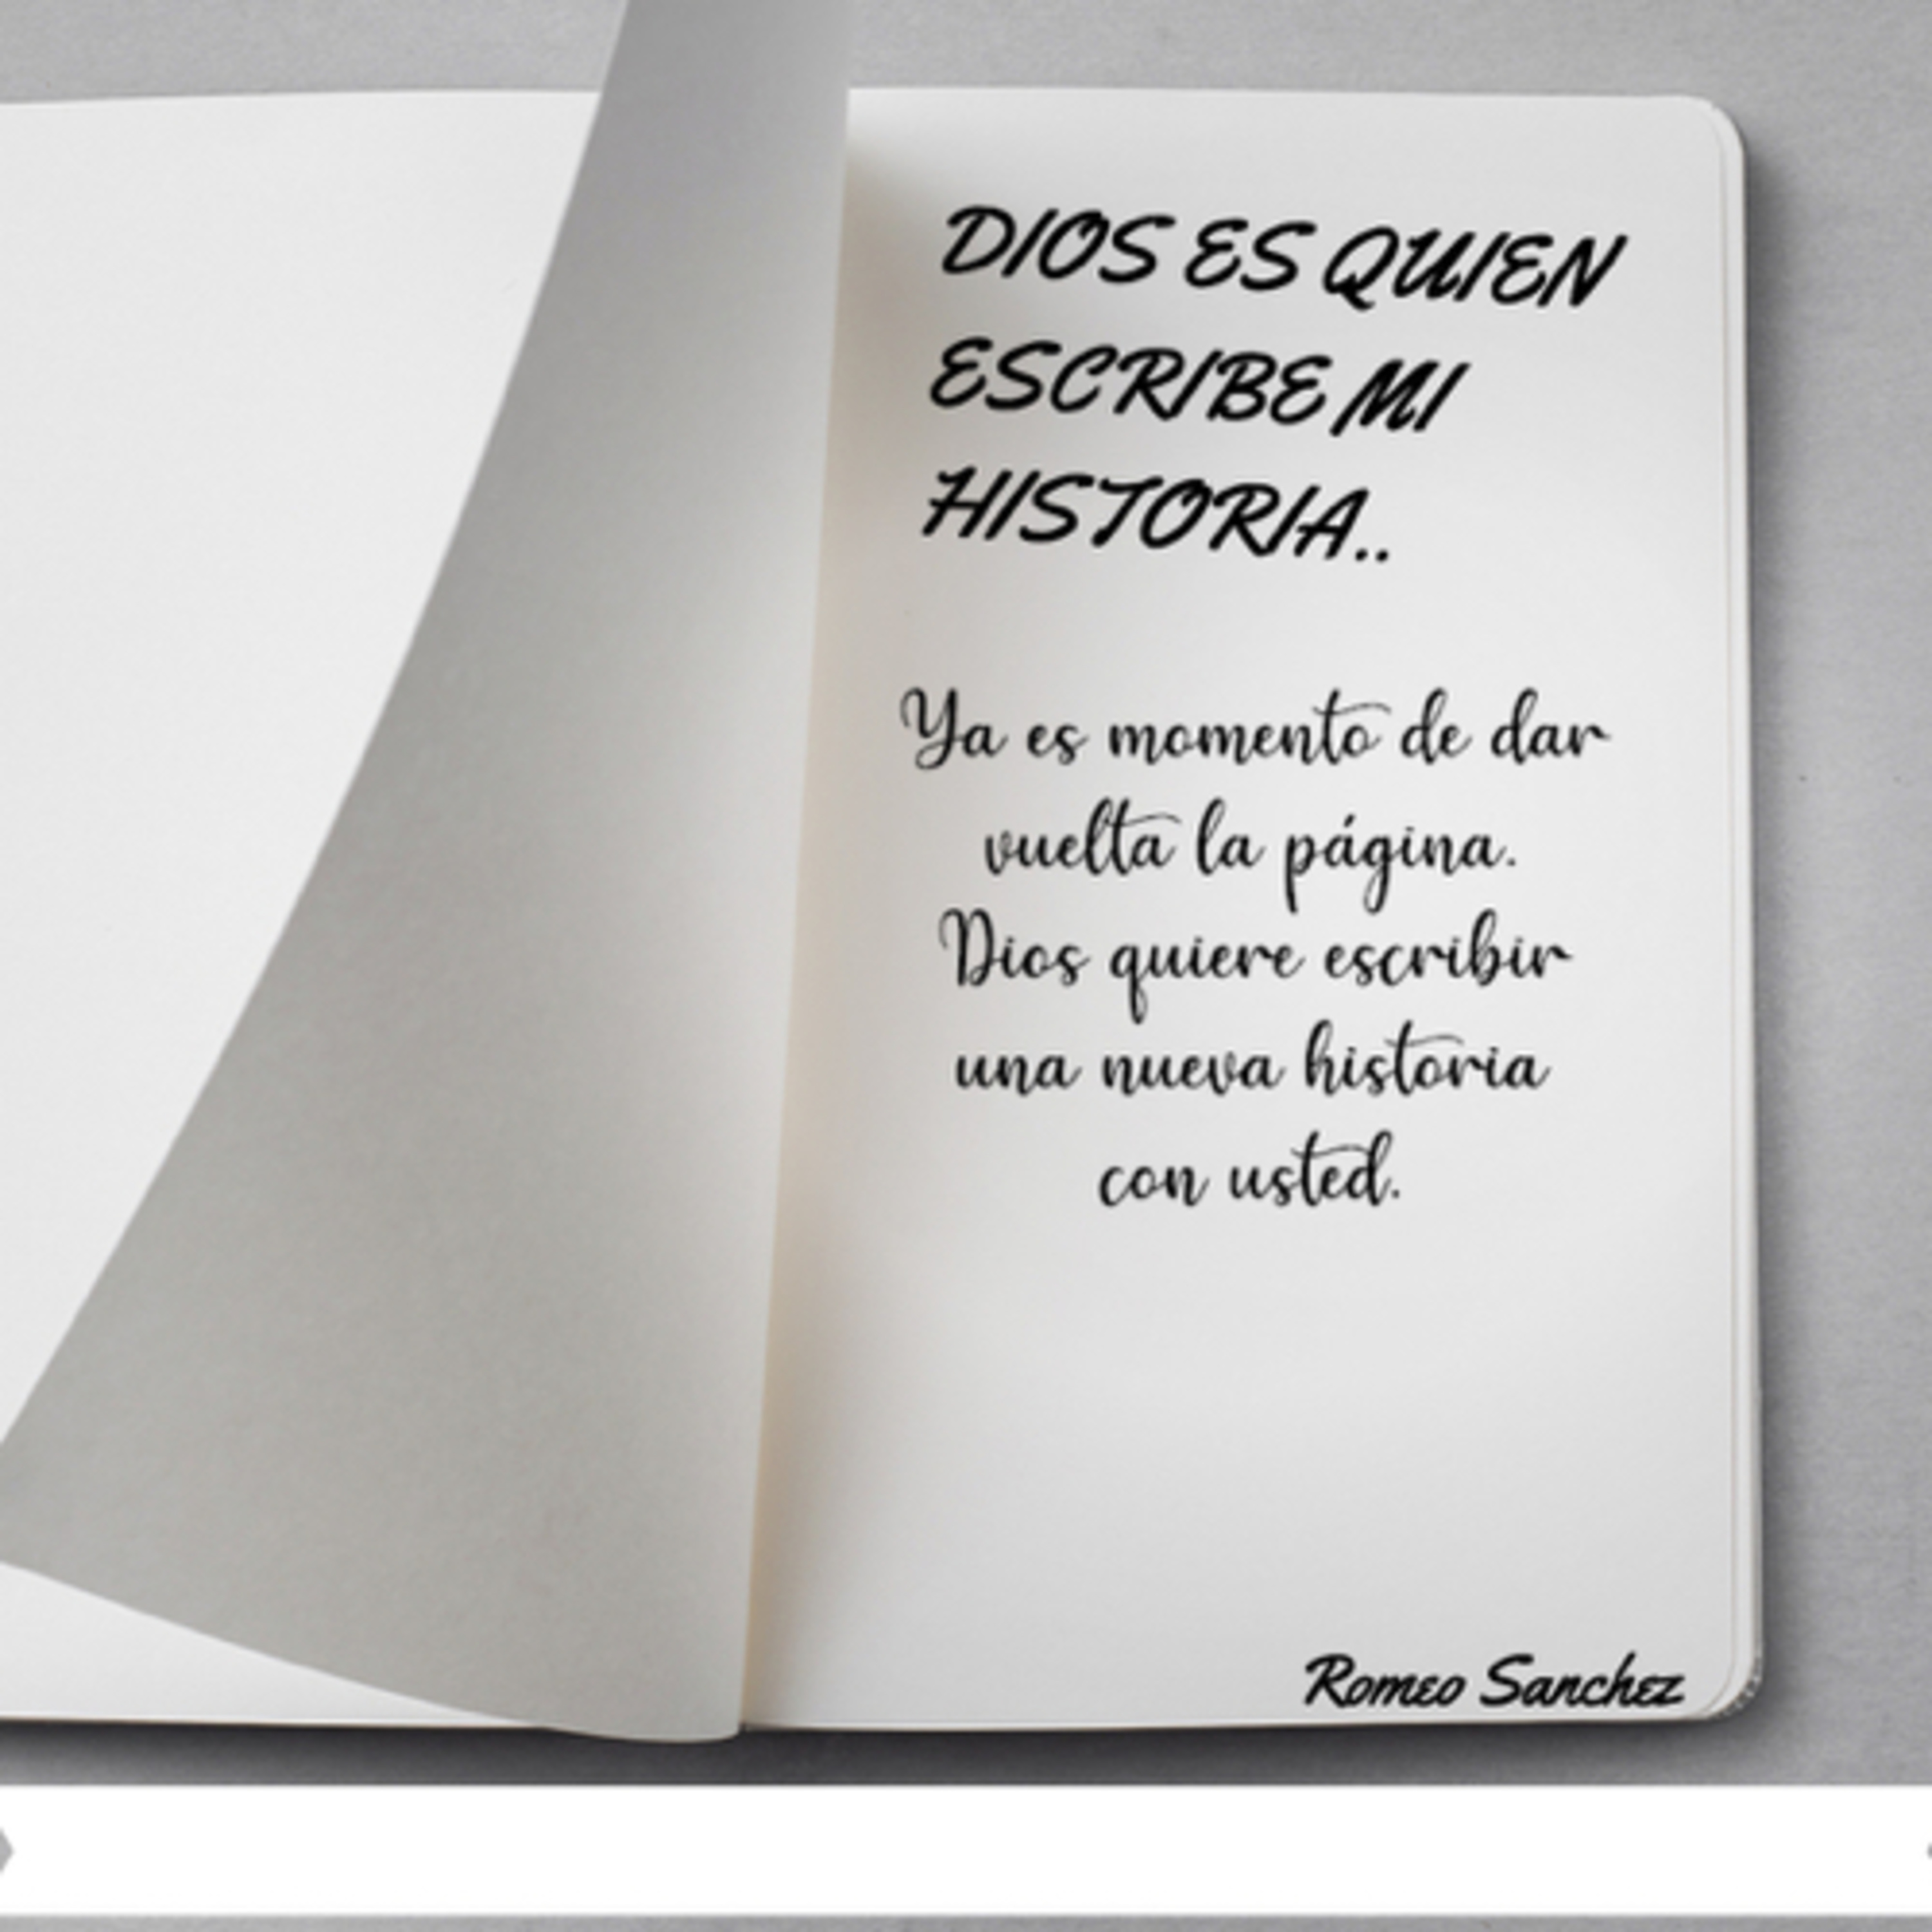 DIOS ES QUIEN
ESCRIBE MI
HISTORIA..
Ya es momento de dar
vuelta la página.
Dios quiere escribir
una nueva historia
con usted.
Romeo Sanchez